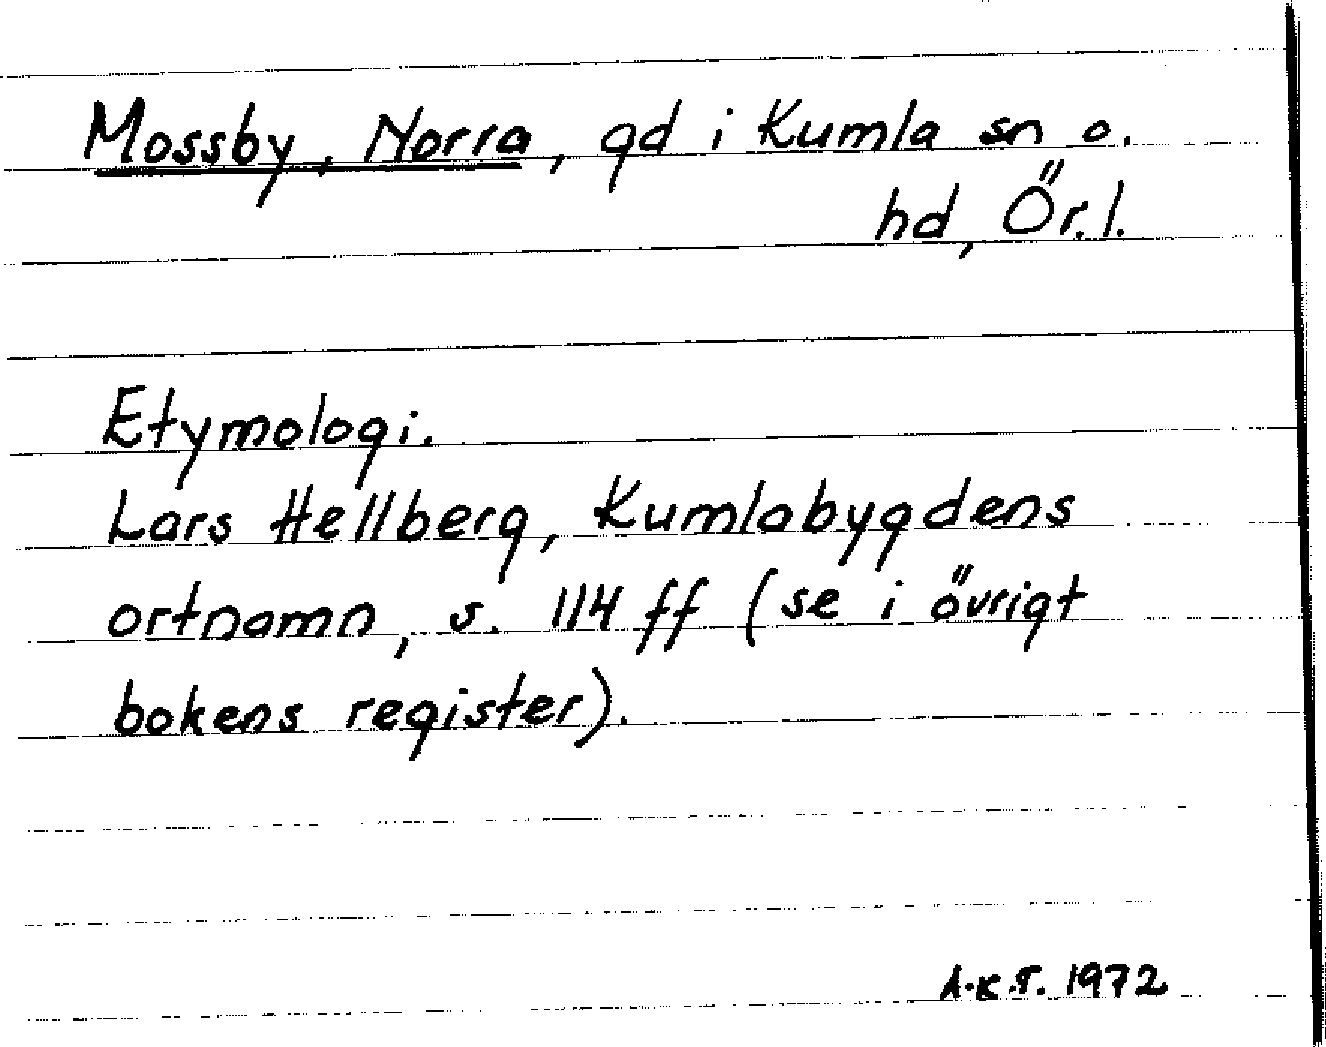 Mossby, Norra, gd i Kumla sn o.
hd, Ör. l.
Etymologi.
Lars Hellberg, Kumlabygdens
ortnamn, s. 114 ff (se i övrigt
bokens register).
A.K.T. 1972